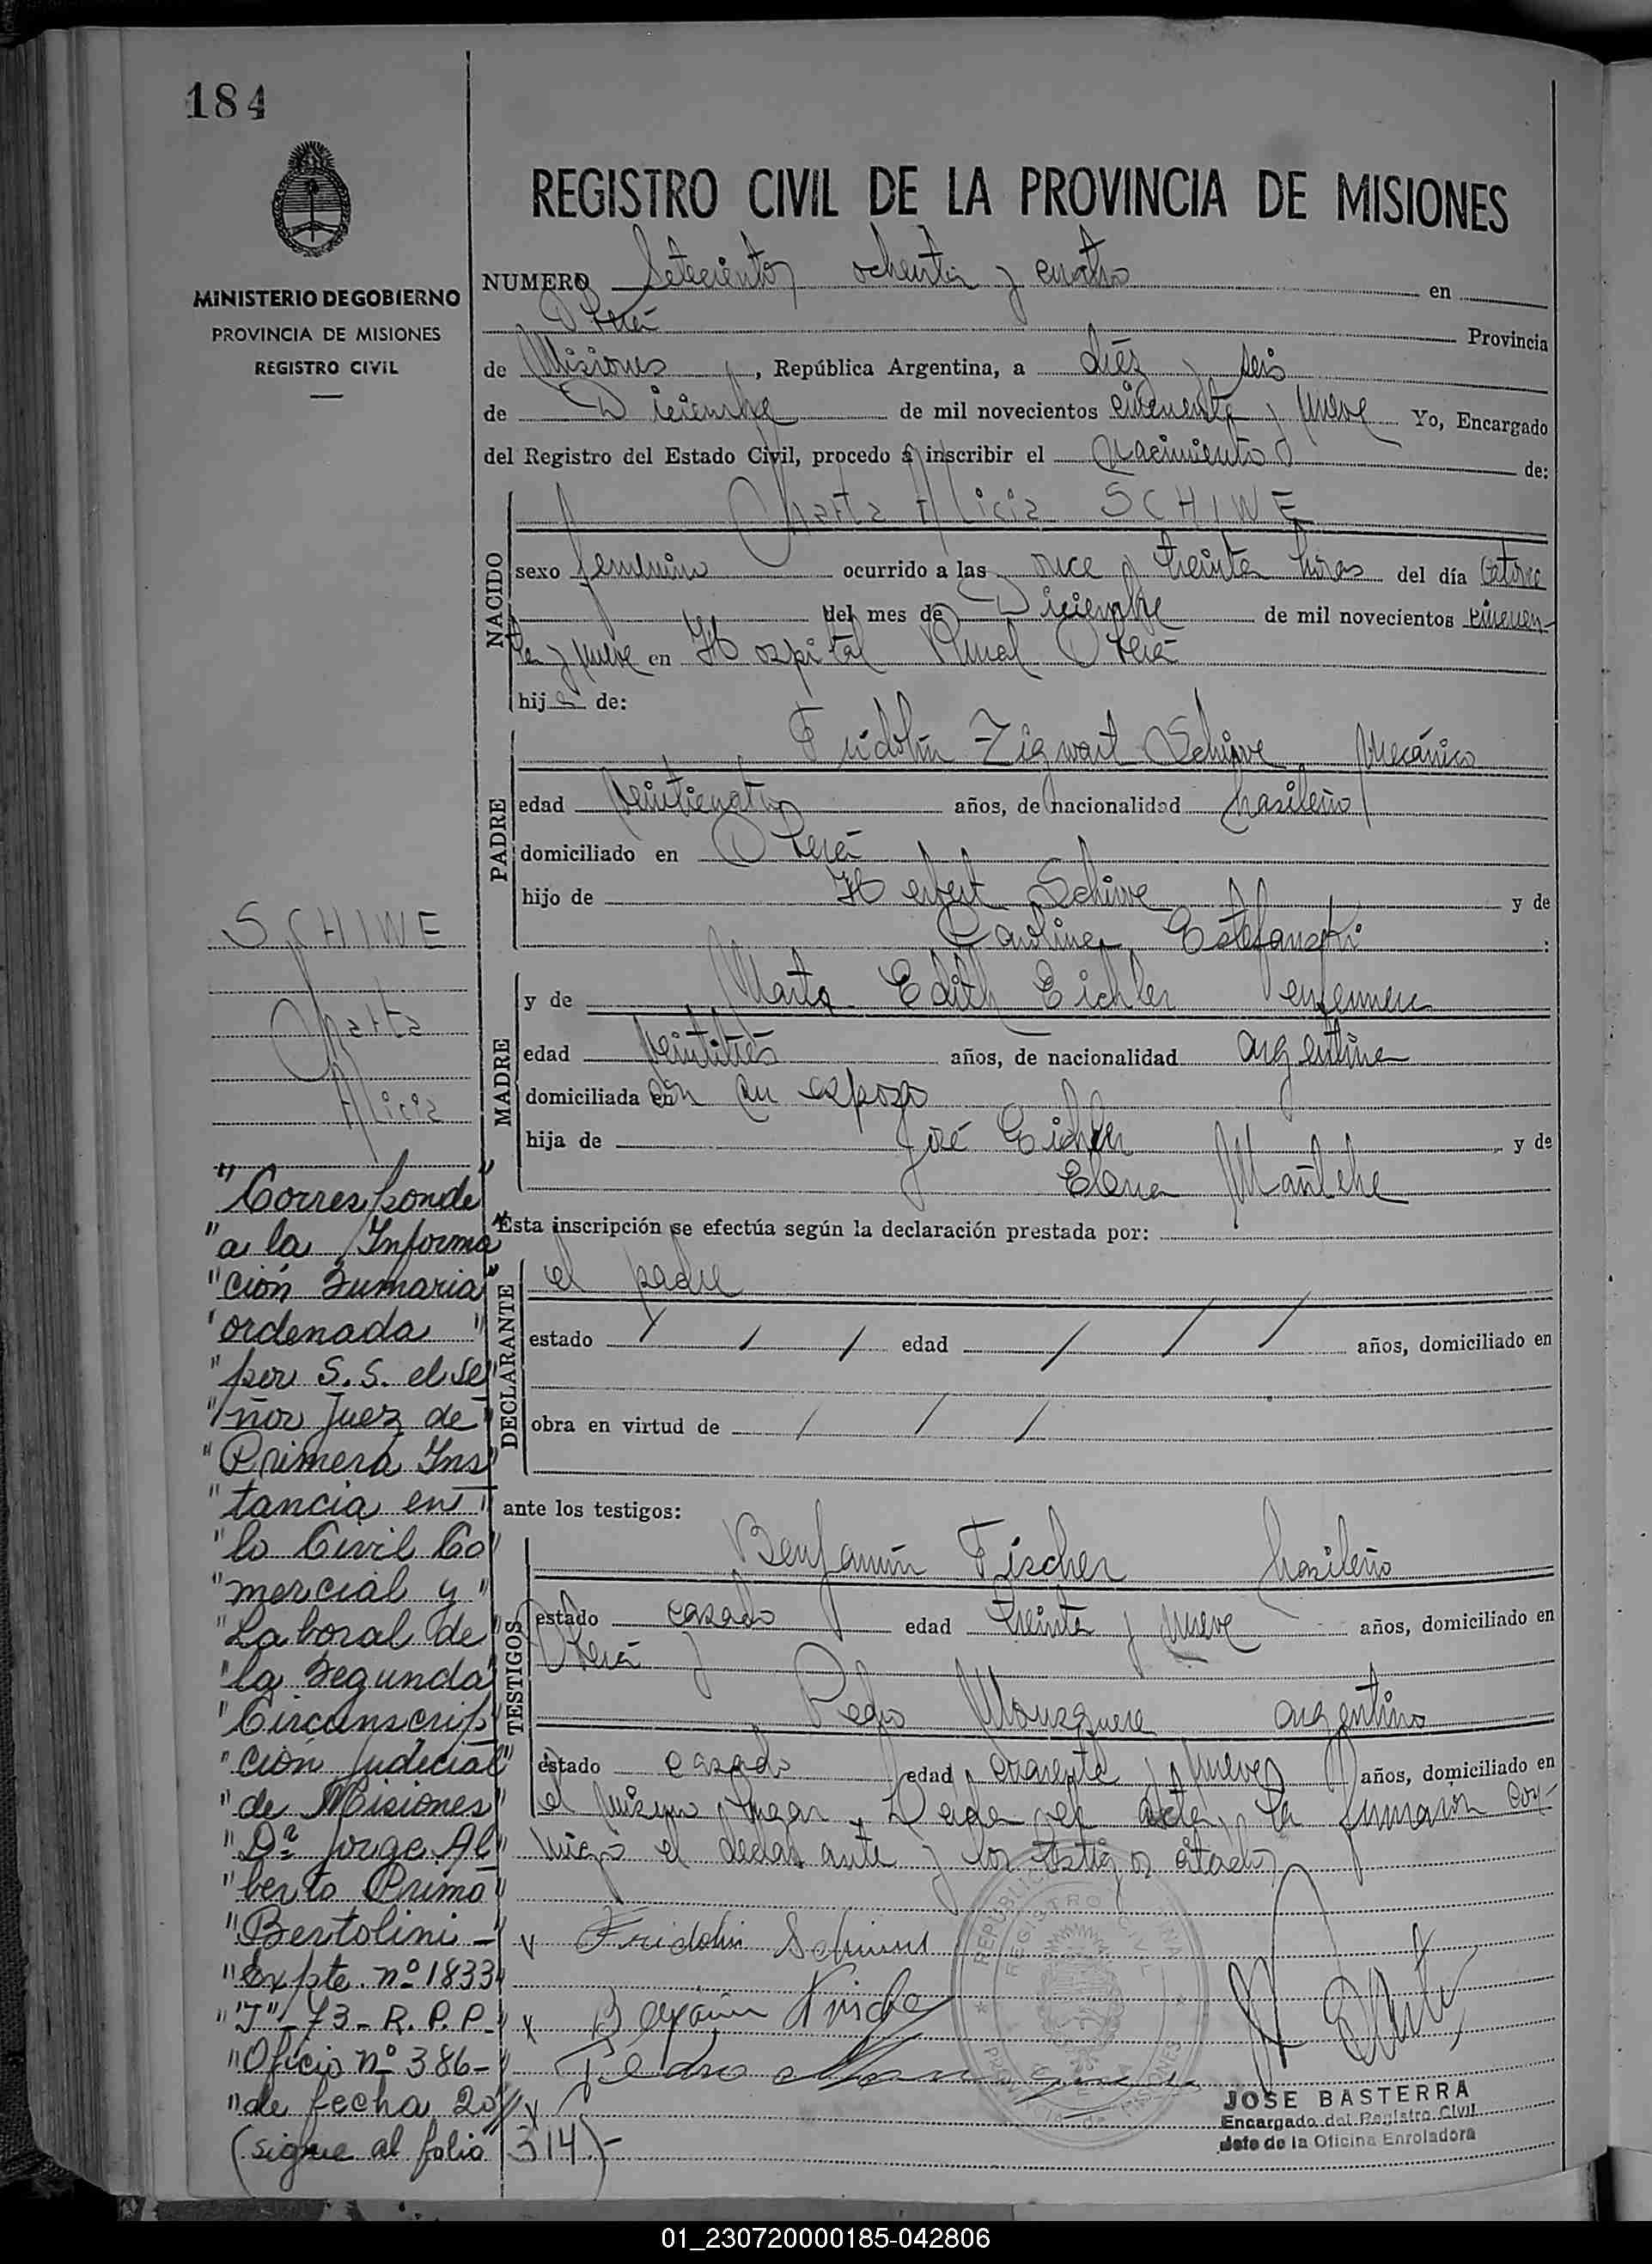 184
MINISTERIO DE GOBIERNO
PROVINCIA DE MISIONES
REGISTRO CIVIL
REGISTRO CIVIL DE LA PROVINCIA DE MISIONES
NUMERO Setecientos ochenta y cuatro en
Oberá Provincia
de Misiones, República Argentina, a diéz y seis
de Diciembre de mil novecientos cincuenta y nueve Yo, Encargado
del Registro del Estado Civil, procedo a inscribir el Nacimiento de:
NACIDO
Marta Alicia SCHIWE
sexo femenino ocurrido a las once y treinta horas del día catorce
del mes de Diciembre de mil novecientos cincuen-
ta y nueve en Hospital Rural Oberá
hija de:
PADRE
Fridolin Zigwart Schiwe Mecánico
edad veinticuatro años, de nacionalidad brasileño
domiciliado en Oberá
hijo de Herbert Schiwe y de
Carolina Estefanski :
MADRE
y de Marta Edith Eichler enfermera
edad veintitrés años, de nacionalidad argentina
domiciliada con su esposo
hija de José Eichler y de
Elena
Esta inscripción se efectúa según la declaración prestada por:
DECLARANTE
el padre
estado / / / edad / / / años, domiciliado en
obra en virtud de / / /
ante los testigos:
TESTIGOS
Benjamín Fischer brasileño
estado casado edad treinta y nueve años, domiciliado en
Oberá y
Pedro argentino
estado casado edad cuarenta y nueve años, domiciliado en
el mismo lugar. Leída el acta, la firmaron con-
migo el declarante y los testigos citados
SCHIWE
Marta
Alicia
"Corresponde"
"a la Informa"
"ción Sumaria"
"ordenada"
"por S. S. el Se"
"ñor Juez de"
"Primera Ins"
"tancia en"
"lo Civil Co"
"mercial y"
"Laboral de"
"la Segunda"
"Circunscrip"
"ción Judicial"
"de Misiones"
"Dº Jorge Al"
"berto Primo"
"Bertolini-"
"Expte. nº 1833"
"J"-73-R.P.P."
"Oficio nº 386-"
"de fecha 20"
(sigue al folio 314)-
Fridolin
Pedro
JOSE BASTERRA
Encargado del Registro Civil
Jefe de la Oficina Enroladora
01_230720000185-042806